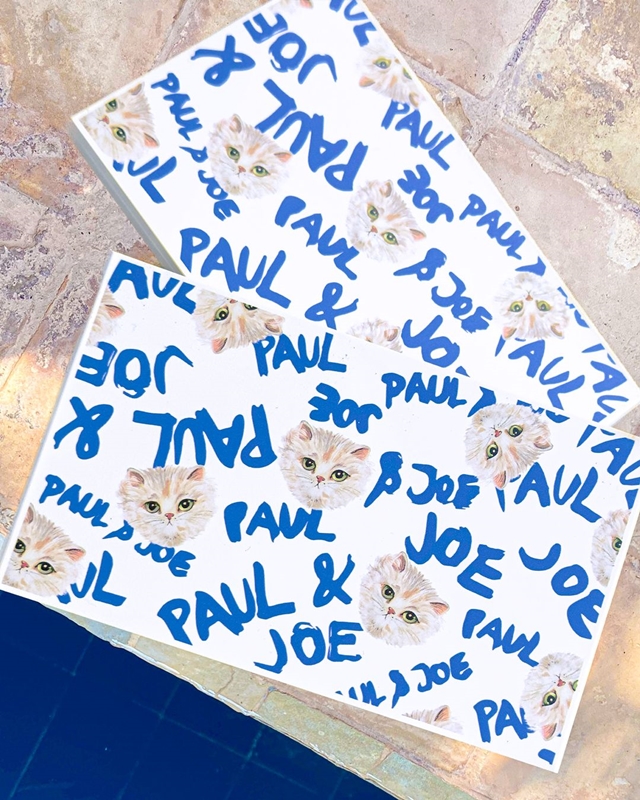 PAUL
& JOE
PAUL
PAUL
PAUL & JOE
JOE
PAUL
PAUL
PAUL &
& JOE
JOE
PAUL
AUL
PAUL
PAUL &
JOE
JOE
& PAUL
& JOE
PAUL
PAUL & JOE
PAUL
JOE
JOE
PAUL &
JOE
PAUL
& JOE
PA